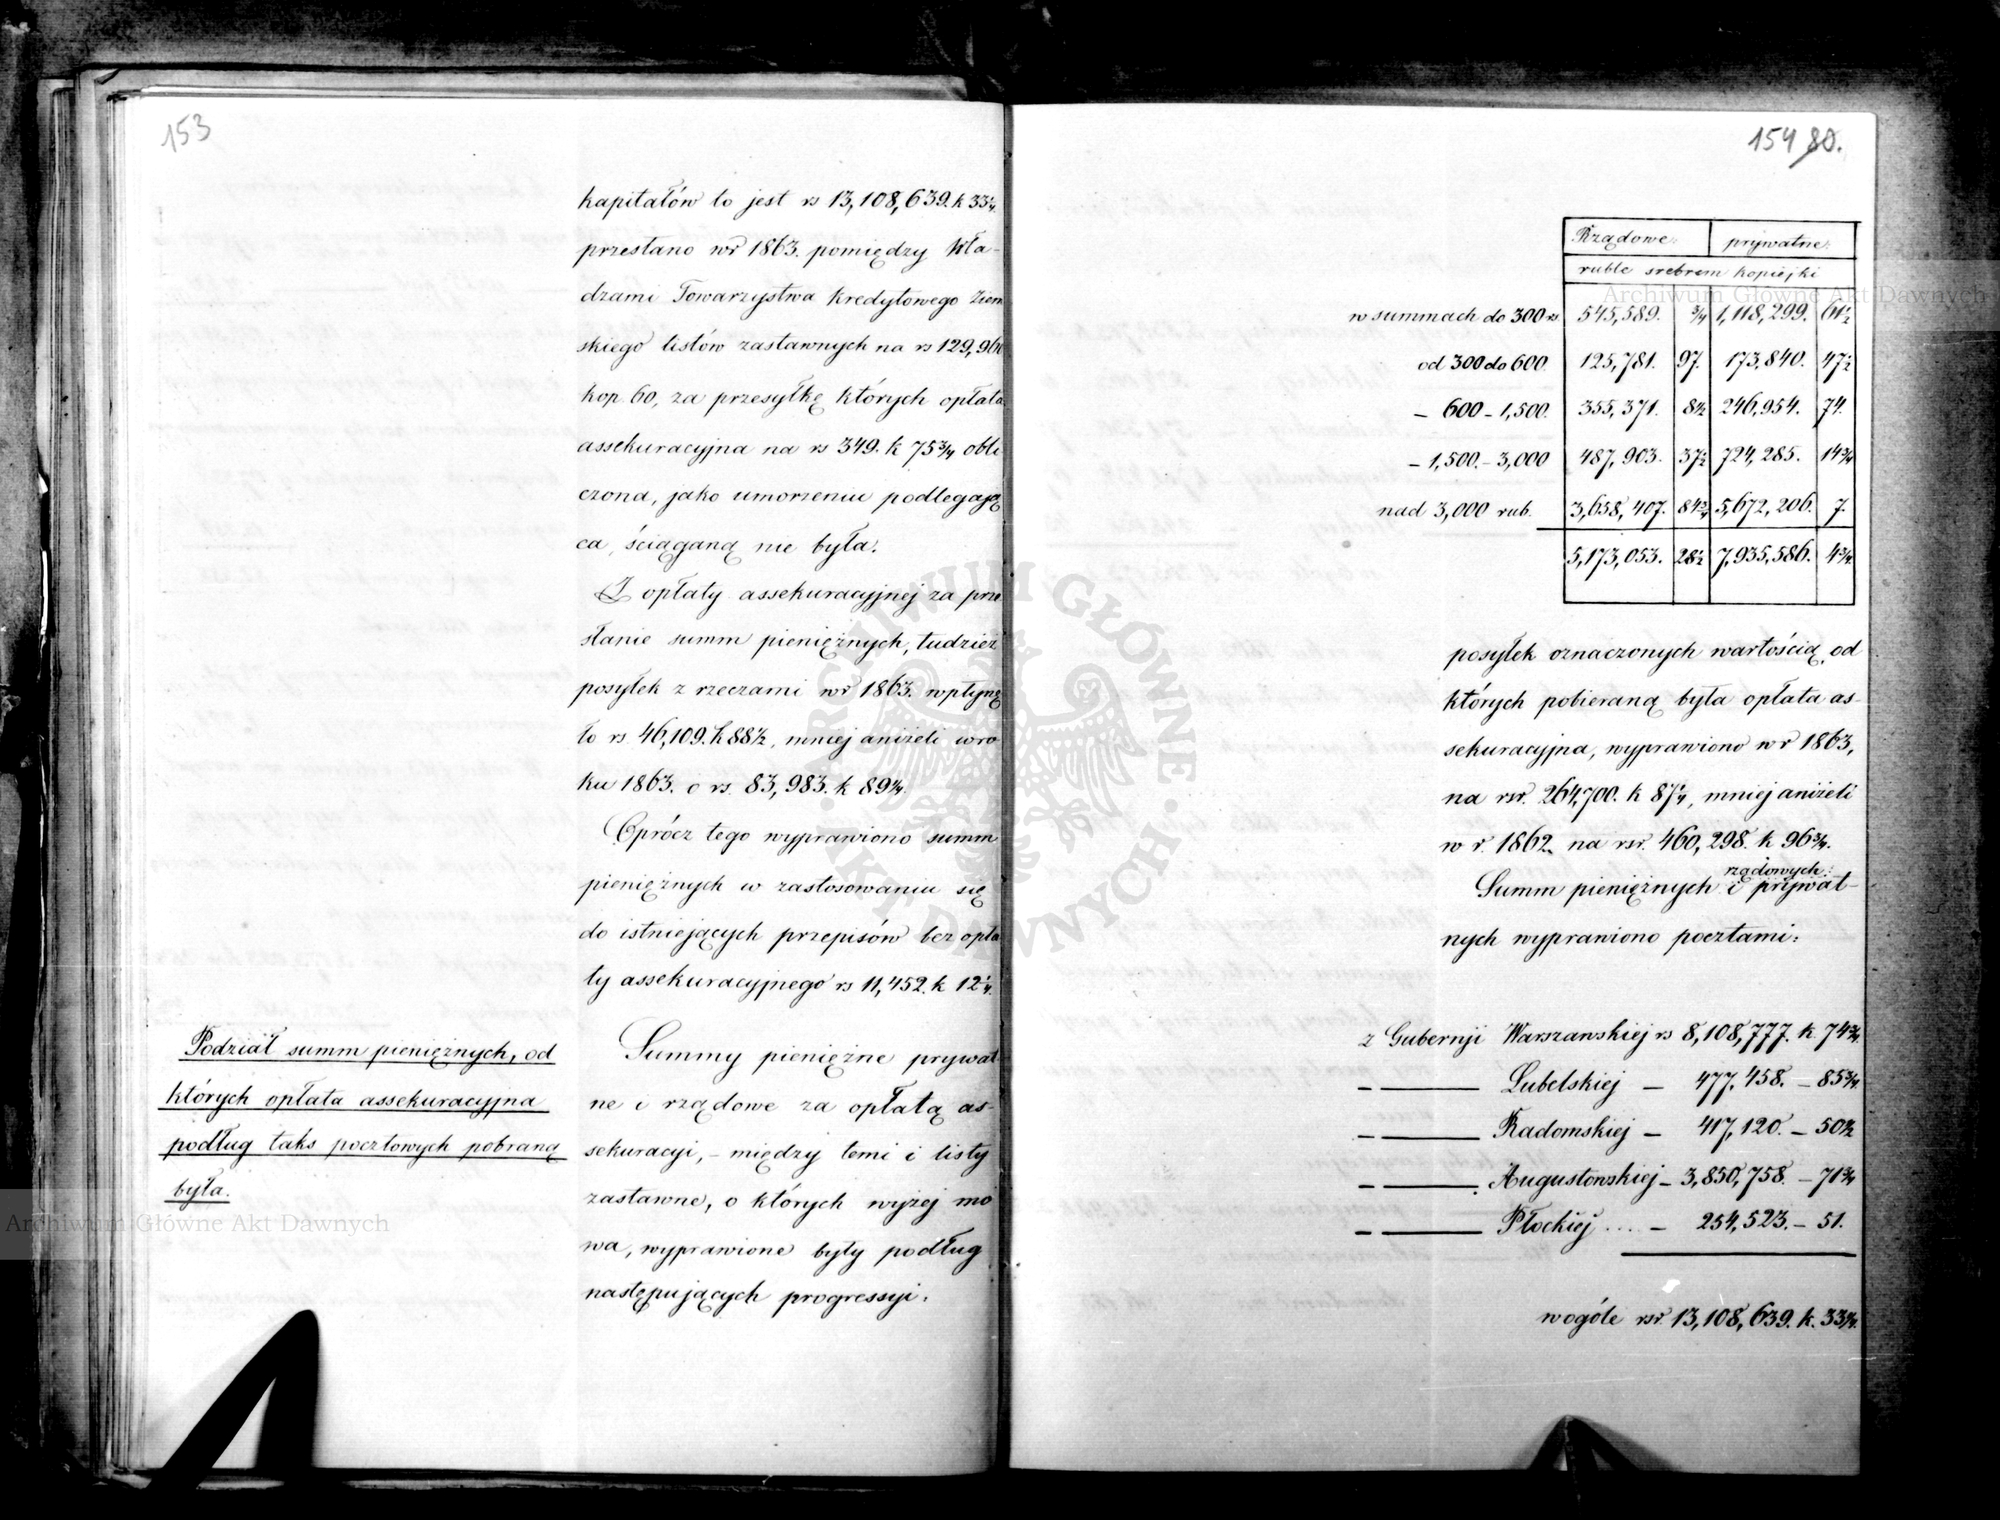 153
kapitałów to jest rs 13,108,639. k 33¼.
przesłano w r 1863. pomiędzy Wła-
dzami Towarzystwa Kredytowego Ziem
skiego listów zastawnych na rs 129,960
kop. 60, za przesyłkę których opłata
assekuracyjna na rs 349. k 75¾ obli
czona, jako umorzeniu podlegają
ca, ściąganą nie była.
Z opłaty assekuracyjnej za prze
słanie summ pieniężnych, tudzież
posyłek z rzeczami w r 1863. wpłynę
ło rs 46,109. k 88½, mniej aniżeli w ro
ku 1863. o rs. 83,983. k 89¼.
Oprócz tego wyprawiono summ
pieniężnych w zastosowaniu się
do istniejących przepisów bez opła
ty assekuracyjnego rs 11,452. k 12¼.
Podział summ pieniężnych, od
których opłata assekuracyjna
podług taks pocztowych pobraną
była.
Summy pieniężne prywat
ne i rządowe za opłatą as-
sekuracyi, – między temi i listy
zastawne, o których wyżej mo
wa, wyprawione były podług
następujących progressyi.
154 80.
Rządowe. prywatne.
ruble srebrem kopiejki
w summach do 300 rs 545,589. ¾ 1,118,299. 61½
od 300 do 600. 125,781. 97. 173,840. 47½
– 600 – 1,500. 355,371. 8½ 246,954. 74.
– 1,500. – 3,000 487,903. 37½ 724,285. 14¾
nad 3,000 rub. 3,658,407. 84¾ 5,672,206. 7.
5,173,053. 28½ 7,935,586. 4¾
posyłek oznaczonych wartością, od
których pobieraną była opłata as-
sekuracyjna, wyprawiono w r 1863,
na rsr. 264,700. k 87¼, mniej aniżeli
w r. 1862 na rsr. 460,298. k 96¾.
rządowych
Summ pieniężnych i prywat-
nych wyprawiono pocztami.
z Gubernji Warszawskiej rs 8,108,777. k 74¾.
– — Lubelskiej – 477,458. – 85¾
– — Radomskiej – 417,120. – 50½
– — Augustowskiej – 3,850,758. – 71¾
– — Płockiej .... – 254,523. – 51.
wogóle rsr. 13,108,639. k. 33¼.
Archiwum Główne Akt Dawnych
Archiwum Główne Akt Dawnych
ARCHIWUM GŁÓWNE AKT DAWNYCH